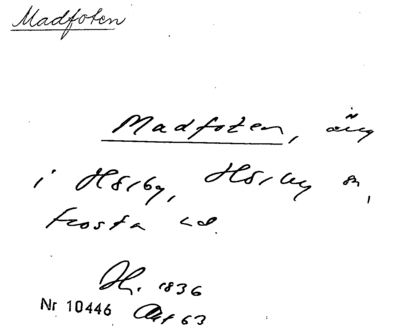 Madfoten
Madfoten, äng
i Hörby, Hörby sn,
Frosta hd.
H. 1836
Nr 10446 Akt 63